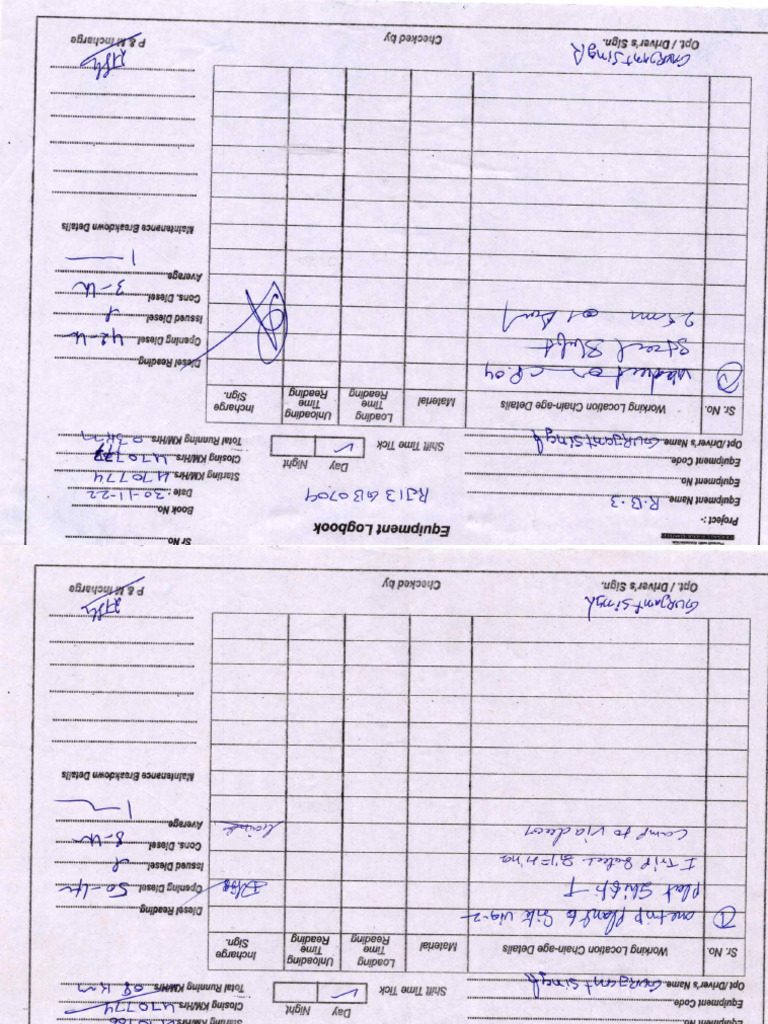 Equipment No.
Starting KM/Hrs.
Equipment Code.
Day Night
Closing KM/Hrs. 470774
Opt/Driver's Name. Gurjant Singh
Shift Time Tick ✓
Total Running KM/Hrs. 08 km
Sr. No. Working Location Chain-age Details Material Loading Time Reading Unloading Time Reading Incharge Sign.
Diesel Reading
① one trip Plant to Site via-2
Opening Diesel. 50-Lt
Issued Diesel.
1 Trip
Cons. Diesel. 8-Lt
Camp to viaduct
Average.
Maintenance Breakdown Details
Gurjant Singh
Opt. / Driver's Sign. Checked by P & M Incharge
Sr No
Project :
Equipment Logbook
Book No.
Equipment Name R.B.3
RJ13GB0704
Date : 30-11-22
Equipment No.
Starting KM/Hrs. 470774
Equipment Code.
Day Night
Closing KM/Hrs. 470777
Opt/Driver's Name. Gurjant Singh
Shift Time Tick ✓
Total Running KM/Hrs. 03 km
Sr. No. Working Location Chain-age Details Material Loading Time Reading Unloading Time Reading Incharge Sign.
② viaduct on CP.04
Diesel Reading
Steel Shift
Opening Diesel. 42-Lt
25mm
Issued Diesel.
Cons. Diesel. 3-Lt
Average.
Maintenance Breakdown Details
Gurjant Singh
Opt. / Driver's Sign. Checked by P & M Incharge